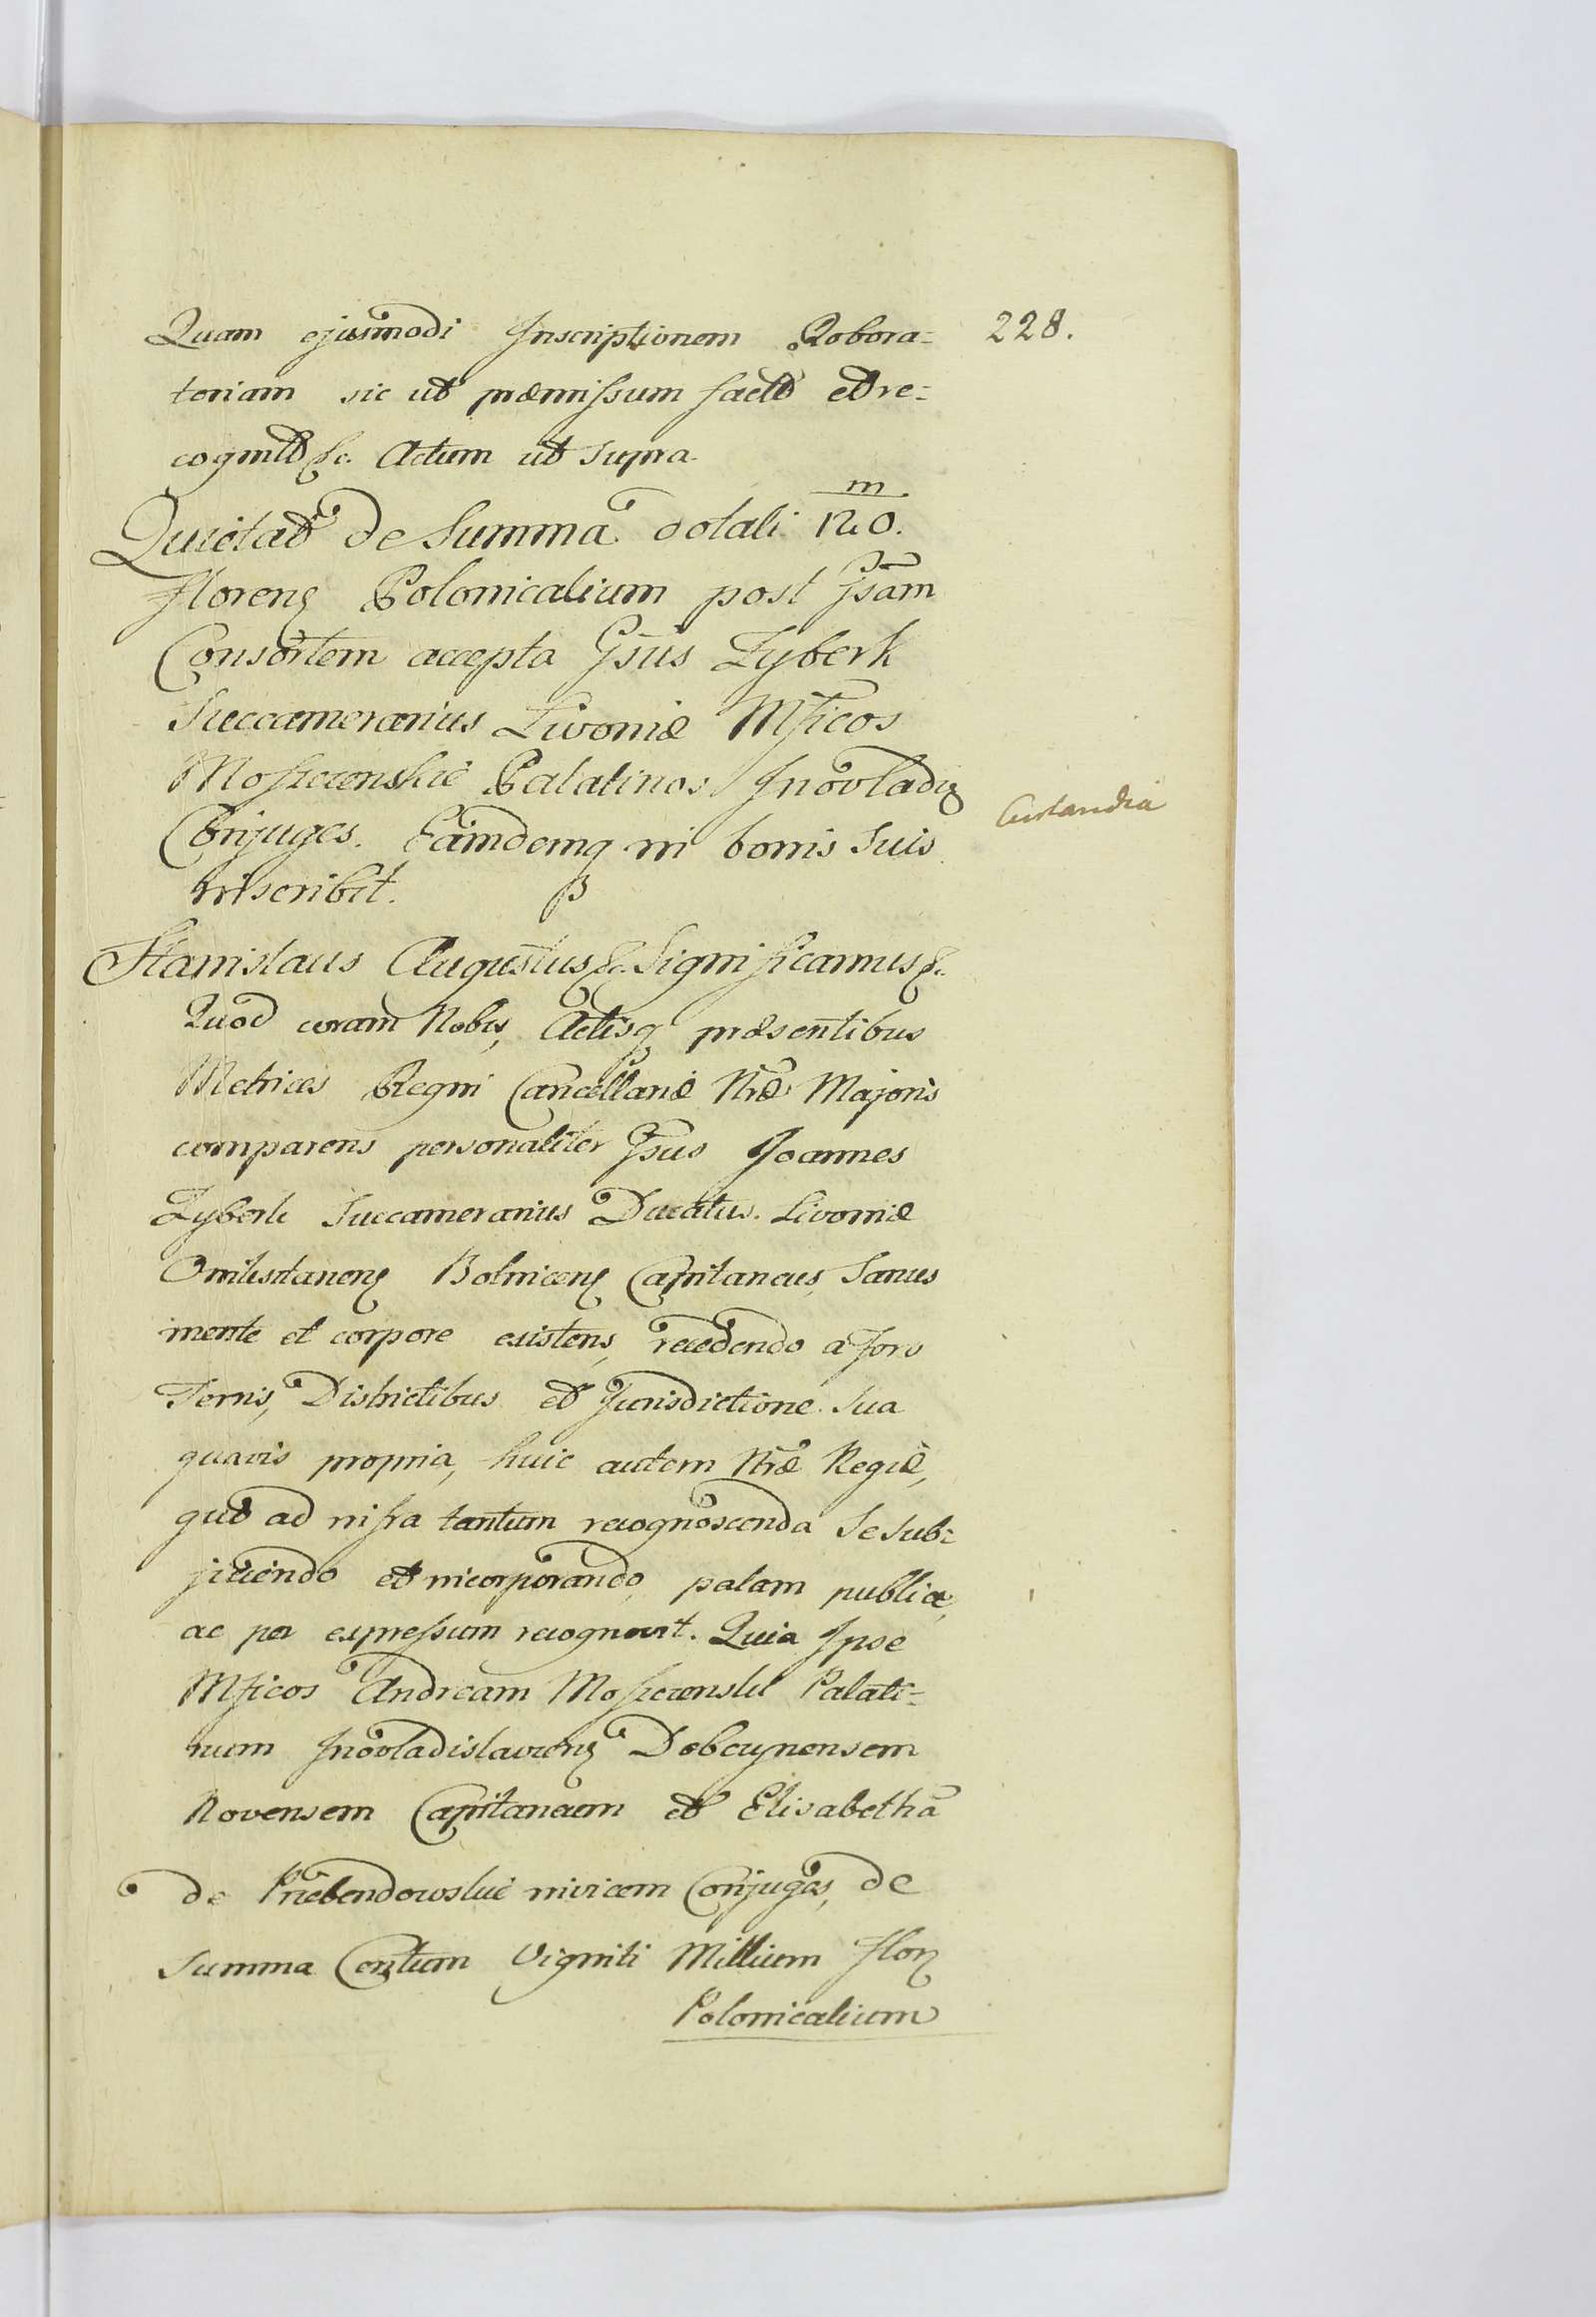 Quam ejusmodi Inscriptionem Robora=
228.
toriam sic ut præmissum factâ et re=
cognitâ &c. Actum ut supra.
Quietat de Summa dotali 120.
m
floren Polonicalium post Gsam
Consortem accepta Gsus Zyberk
Succamerarius Livoniæ Mficos
Moszczenskie Palatinos Inovladis
Curlandia
Conjuges. Eamdemq in bonis suis
inscribit.
Stanislaus Augustus &c. Significamus &c.
Quod coram Nobis, Actisq præsentibus
Metrices Regni Cancellariæ Nræ Majoris
comparens personaliter Gsus Joannes
Zyberk Succamerarius Ducatus Livoniæ
Bolnicen Capitaneus, Sanus
mente et corpore existens, recedendo a foro
Terris, Districtibus et Jurisdictione sua
quavis propria, huic autem Nræ Regiæ,
quo ad infra tantum recognoscenda se sub=
jiciendo et incorporando, palam publice,
ac per expressum recognovit. Quia Ipse
Mficos Andream Moszczenski Palati=
num Inovladislavien Dobrzynensem
Rovensem Capitaneum et Elisabethã
de Przebendowskie invicem Conjuges, de
summa Centum Viginti Millium flor
Polonicalium